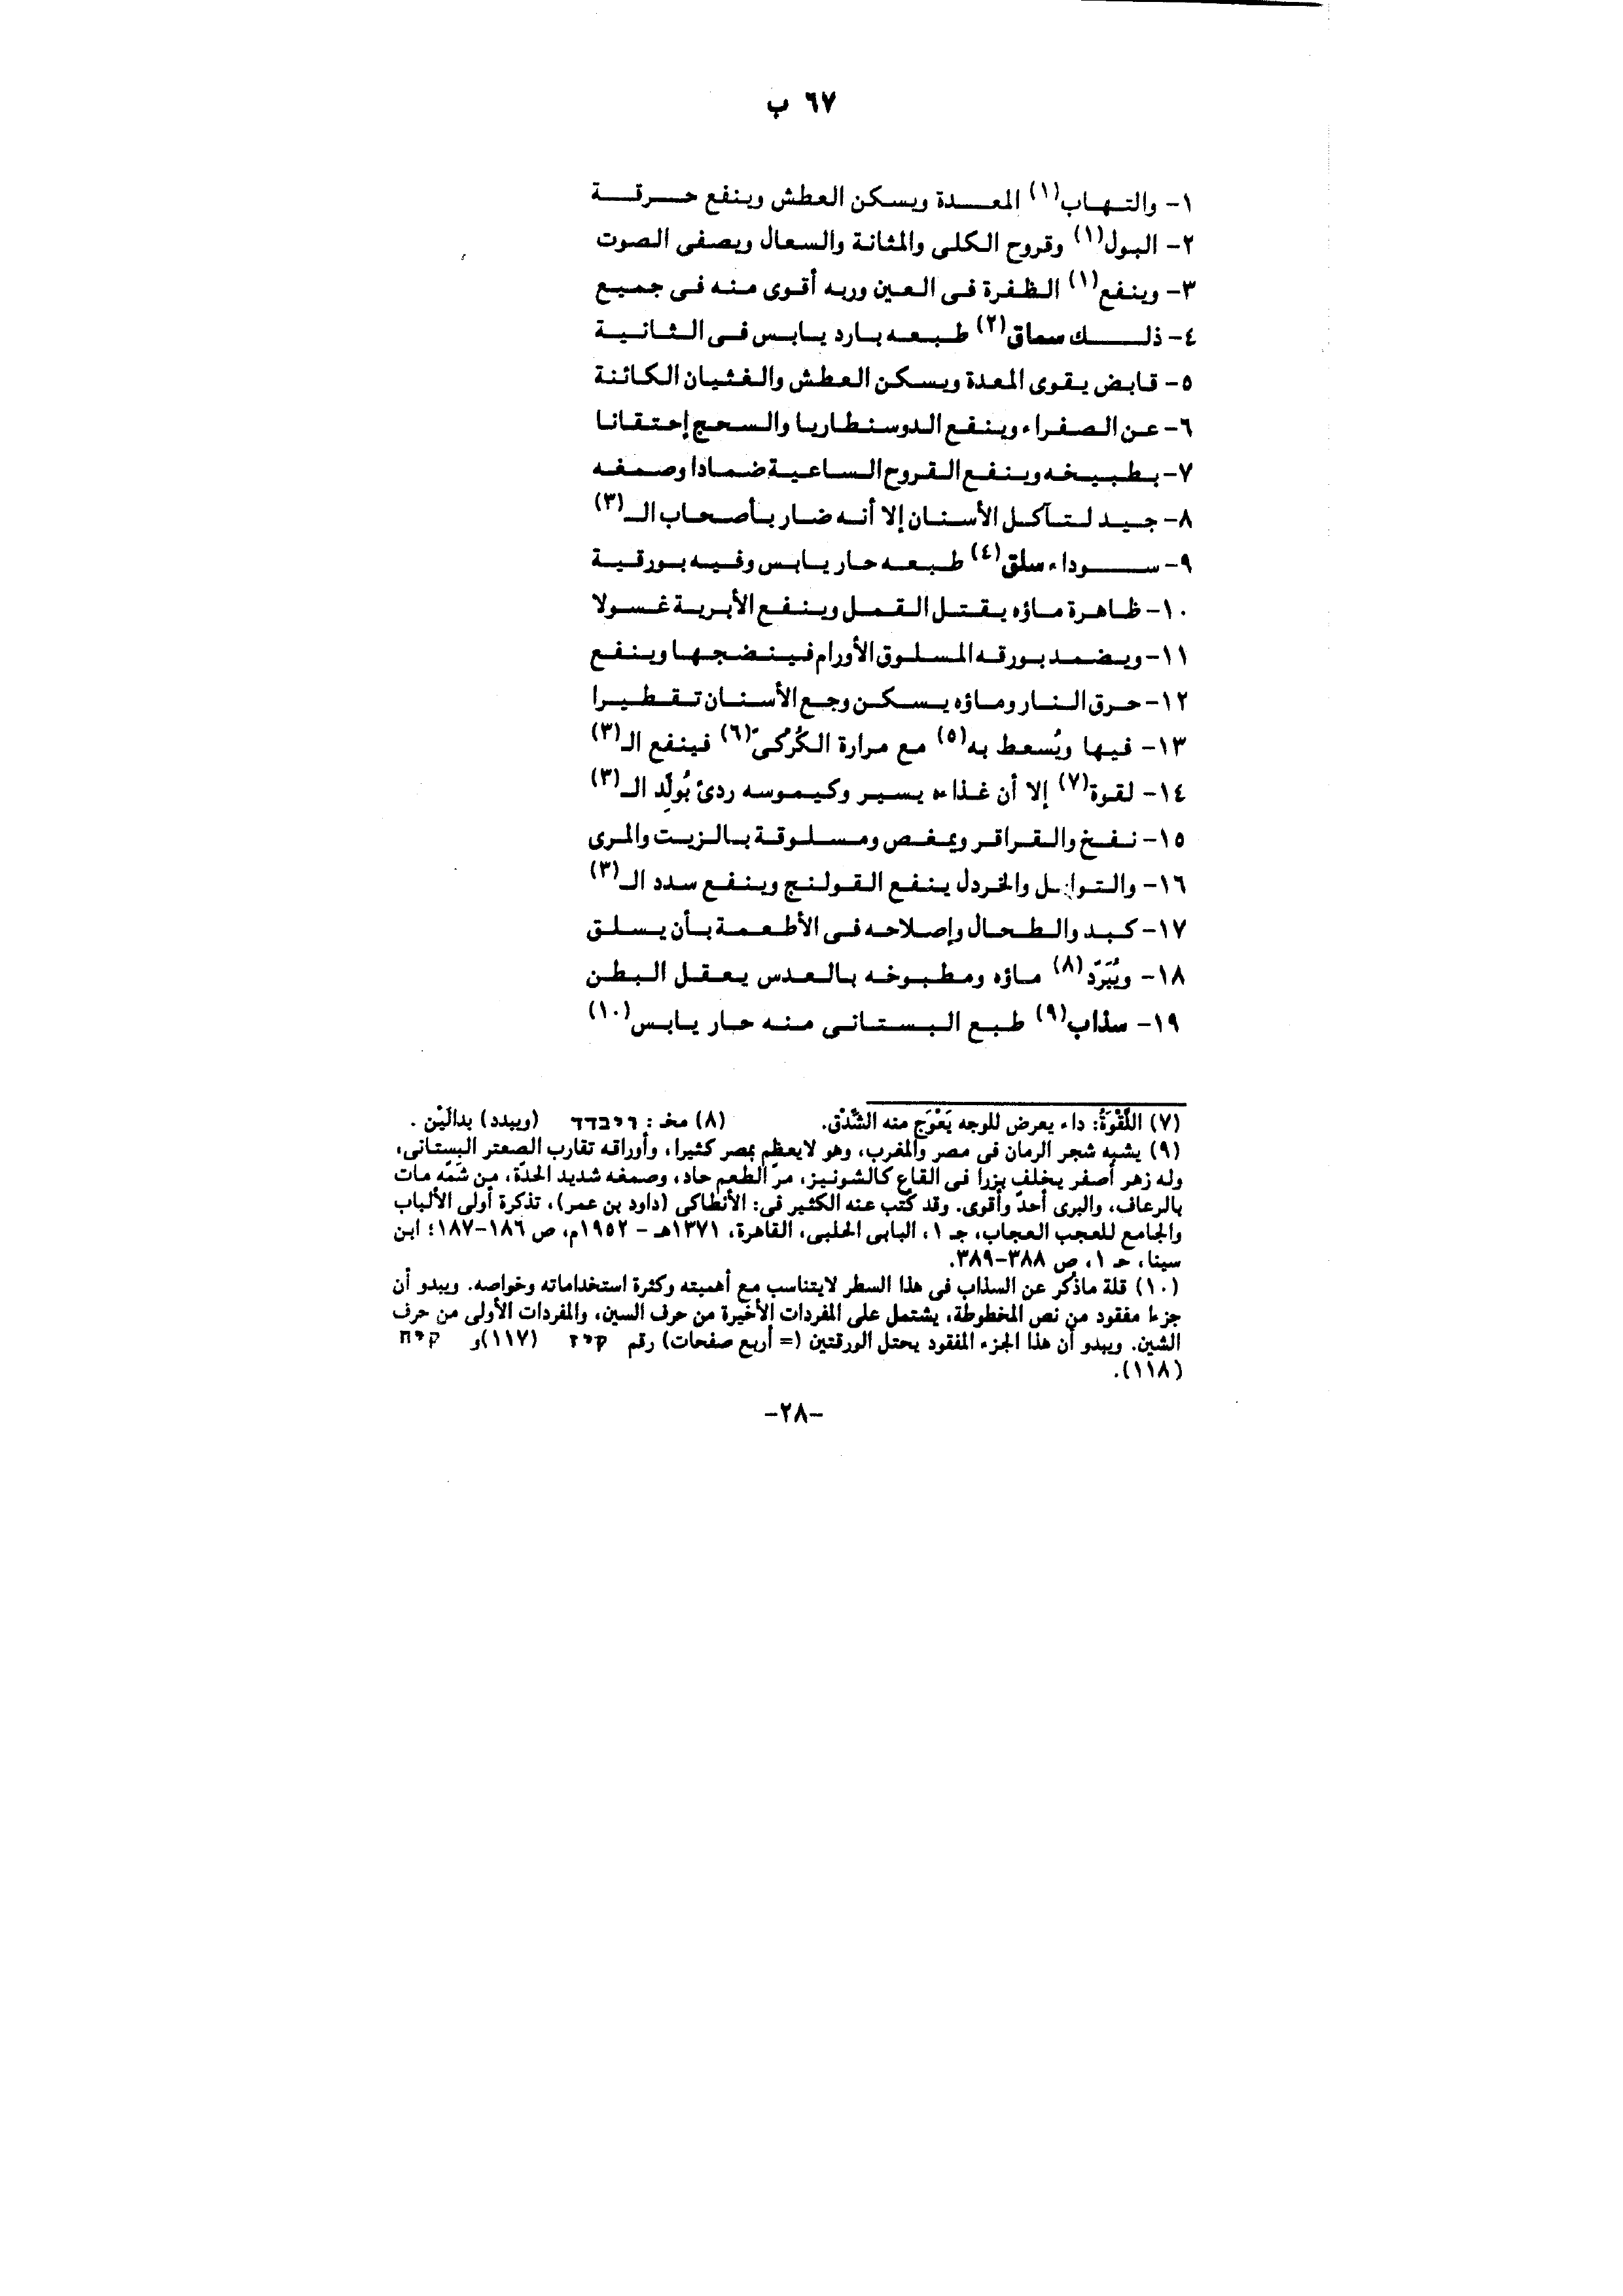 ٦٧ ب
١- والتهاب(١) المعدة ويسكن العطش وينفع حرقة
٢- البول(١) وقروح الكلى والمثانة والسعال ويصفى الصوت
٣- وينفع(١) الظفرة فى العين وربه أقوى منه فى جميع
٤- ذلك سماق(٢) طبعه بارد يابس فى الثانية
٥- قابض يقوى المعدة ويسكن العطش والغثيان الكائنة
٦- عن الصفراء وينفع الدوسنطاريا والسحج إحتقانا
٧- بطبيخه وينفع القروح الساعية ضمادا وصمغه
٨- جيد لتآكل الأسنان إلا أنه ضار بأصحاب الـ(٣)
٩- سوداء سلق(٤) طبعه حار يابس وفيه بورقية
١٠- ظاهرة ماؤه يقتل القمل وينفع الأبرية غسولا
١١- ويضمد بورقه المسلوق الأورام فينضجها وينفع
١٢- حرق النار وماؤه يسكن وجع الأسنان تقطيرا
١٣- فيها ويُسعط به(٥) مع مرارة الكُرْكىّ(٦) فينفع الـ(٣)
١٤- لقوة(٧) إلا أن غذاءه يسير وكيموسه ردئ يُولّد الـ(٣)
١٥- نفخ والقراقر ويمغص ومسلوقة بالزيت والمرى
١٦- والتوابل والخردل ينفع القولنج وينفع سدد الـ(٣)
١٧- كبد والطحال وإصلاحه فى الأطعمة بأن يسلق
١٨- ويُبَرّد(٨) ماؤه ومطبوخه بالعدس يعقل البطن
١٩- سذاب(٩) طبع البستانى منه حار يابس(١٠)
(٧) اللَّقْوَةُ: داء يعرض للوجه يَعْوَج منه الشِّدْق. (٨) مخـ: ויבדד (ويبدد) بدالَيْن .
(٩) يشبه شجر الرمان فى مصر والمغرب، وهو لايعظم بمصر كثيرا، وأوراقه تقارب الصعتر البستانى،
وله زهر أصفر يخلف بزرا فى القاع كالشونيز، مرّ الطعم حاد، وصمغه شديد الحدّة، من شمّه مات
بالرعاف، والبرى أحدّ وأقوى. وقد كُتب عنه الكثير فى: الأنطاكى (داود بن عمر)، تذكرة أولى الألباب
والجامع للعجب العجاب، جـ ١، البابى الحلبى، القاهرة، ١٣٧١هـ - ١٩٥٢م، ص ١٨٦-١٨٧؛ ابن
سينا، حـ ١، ص ٣٨٨-٣٨٩.
(١٠) قلة ماذُكر عن السذاب فى هذا السطر لايتناسب مع أهميته وكثرة استخداماته وخواصه. ويبدو أن
جزءا مفقود من نص المخطوطة، يشتمل على المفردات الأخيرة من حرف السين، والمفردات الأولى من حرف
الشين. ويبدو أن هذا الجزء المفقود يحتل الورقتين (= أربع صفحات) رقم קיז (١١٧)و קיח
(١١٨).
-٢٨-